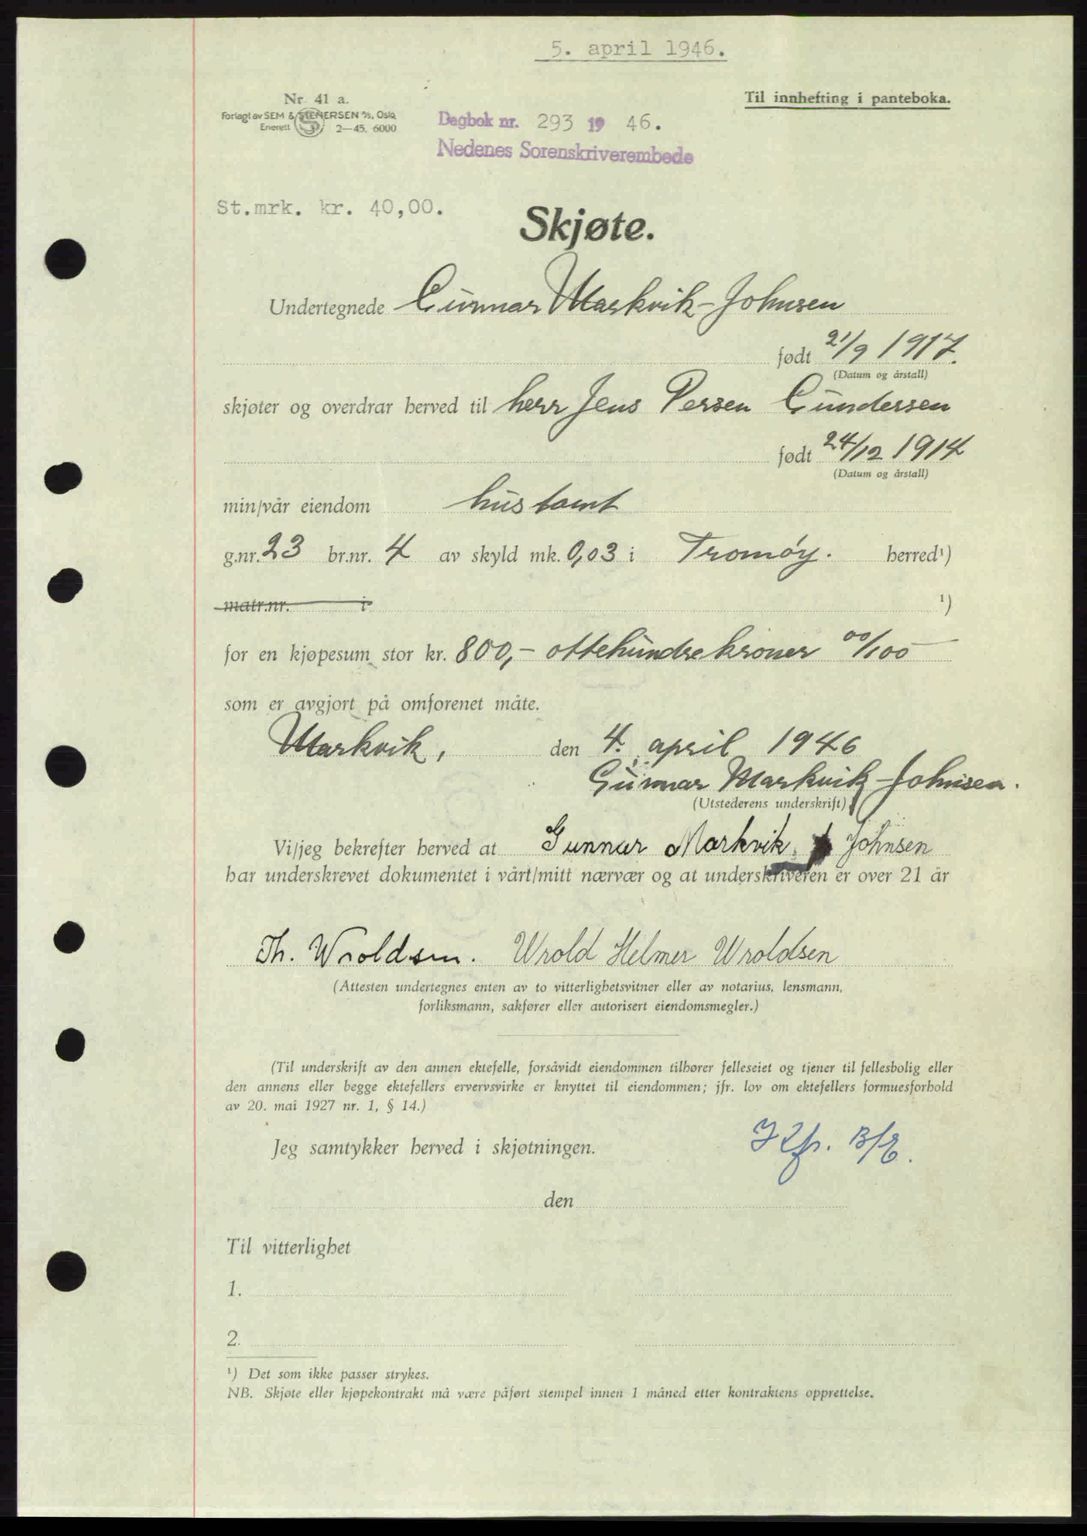 5. april 1946.
Nr. 41 a.
Til innhefting i panteboka.
Forlagt av SEM & STENERSEN A/S, Oslo
Enerett S 2—45. 6000
Dagbok nr. 293 19 46.
Nedenes Sorenskriverembede
St.mrk. kr. 40,00.
Skjøte.
Undertegnede Gunnar Markvik-Johnsen
født 21/9 1917.
(Datum og årstall)
skjøter og overdrar herved til herr Jens Persen Gundersen
født 24/12 1914
(Datum og årstall)
min/vår eiendom hustomt
g.nr. 23 br.nr. 4 av skyld mk. 0,03 i Tromøy. herred¹)
matr.nr. i ¹)
for en kjøpesum stor kr. 800,- ottehundrekroner 00/100
som er avgjort på omforenet måte.
Markvik, den 4. april 1946
Gunnar Markvik-Johnsen.
(Utstederens underskrift)
Vi/jeg bekrefter herved at Gunnar Markvik Johnsen
har underskrevet dokumentet i vårt/mitt nærvær og at underskriveren er over 21 år
Th. Wroldsen. Wrold Helmer Wroldsen
(Attesten undertegnes enten av to vitterlighetsvitner eller av notarius, lensmann,
forliksmann, sakfører eller autorisert eiendomsmegler.)
(Til underskrift av den annen ektefelle, forsåvidt eiendommen tilhører felleseiet og tjener til fellesbolig eller
den annens eller begge ektefellers ervervsvirke er knyttet til eiendommen; jfr. lov om ektefellers formuesforhold
av 20. mai 1927 nr. 1, § 14.)
Jeg samtykker herved i skjøtningen.
den
Til vitterlighet
1.
2.
¹) Det som ikke passer strykes.
NB. Skjøte eller kjøpekontrakt må være påført stempel innen 1 måned etter kontraktens opprettelse.